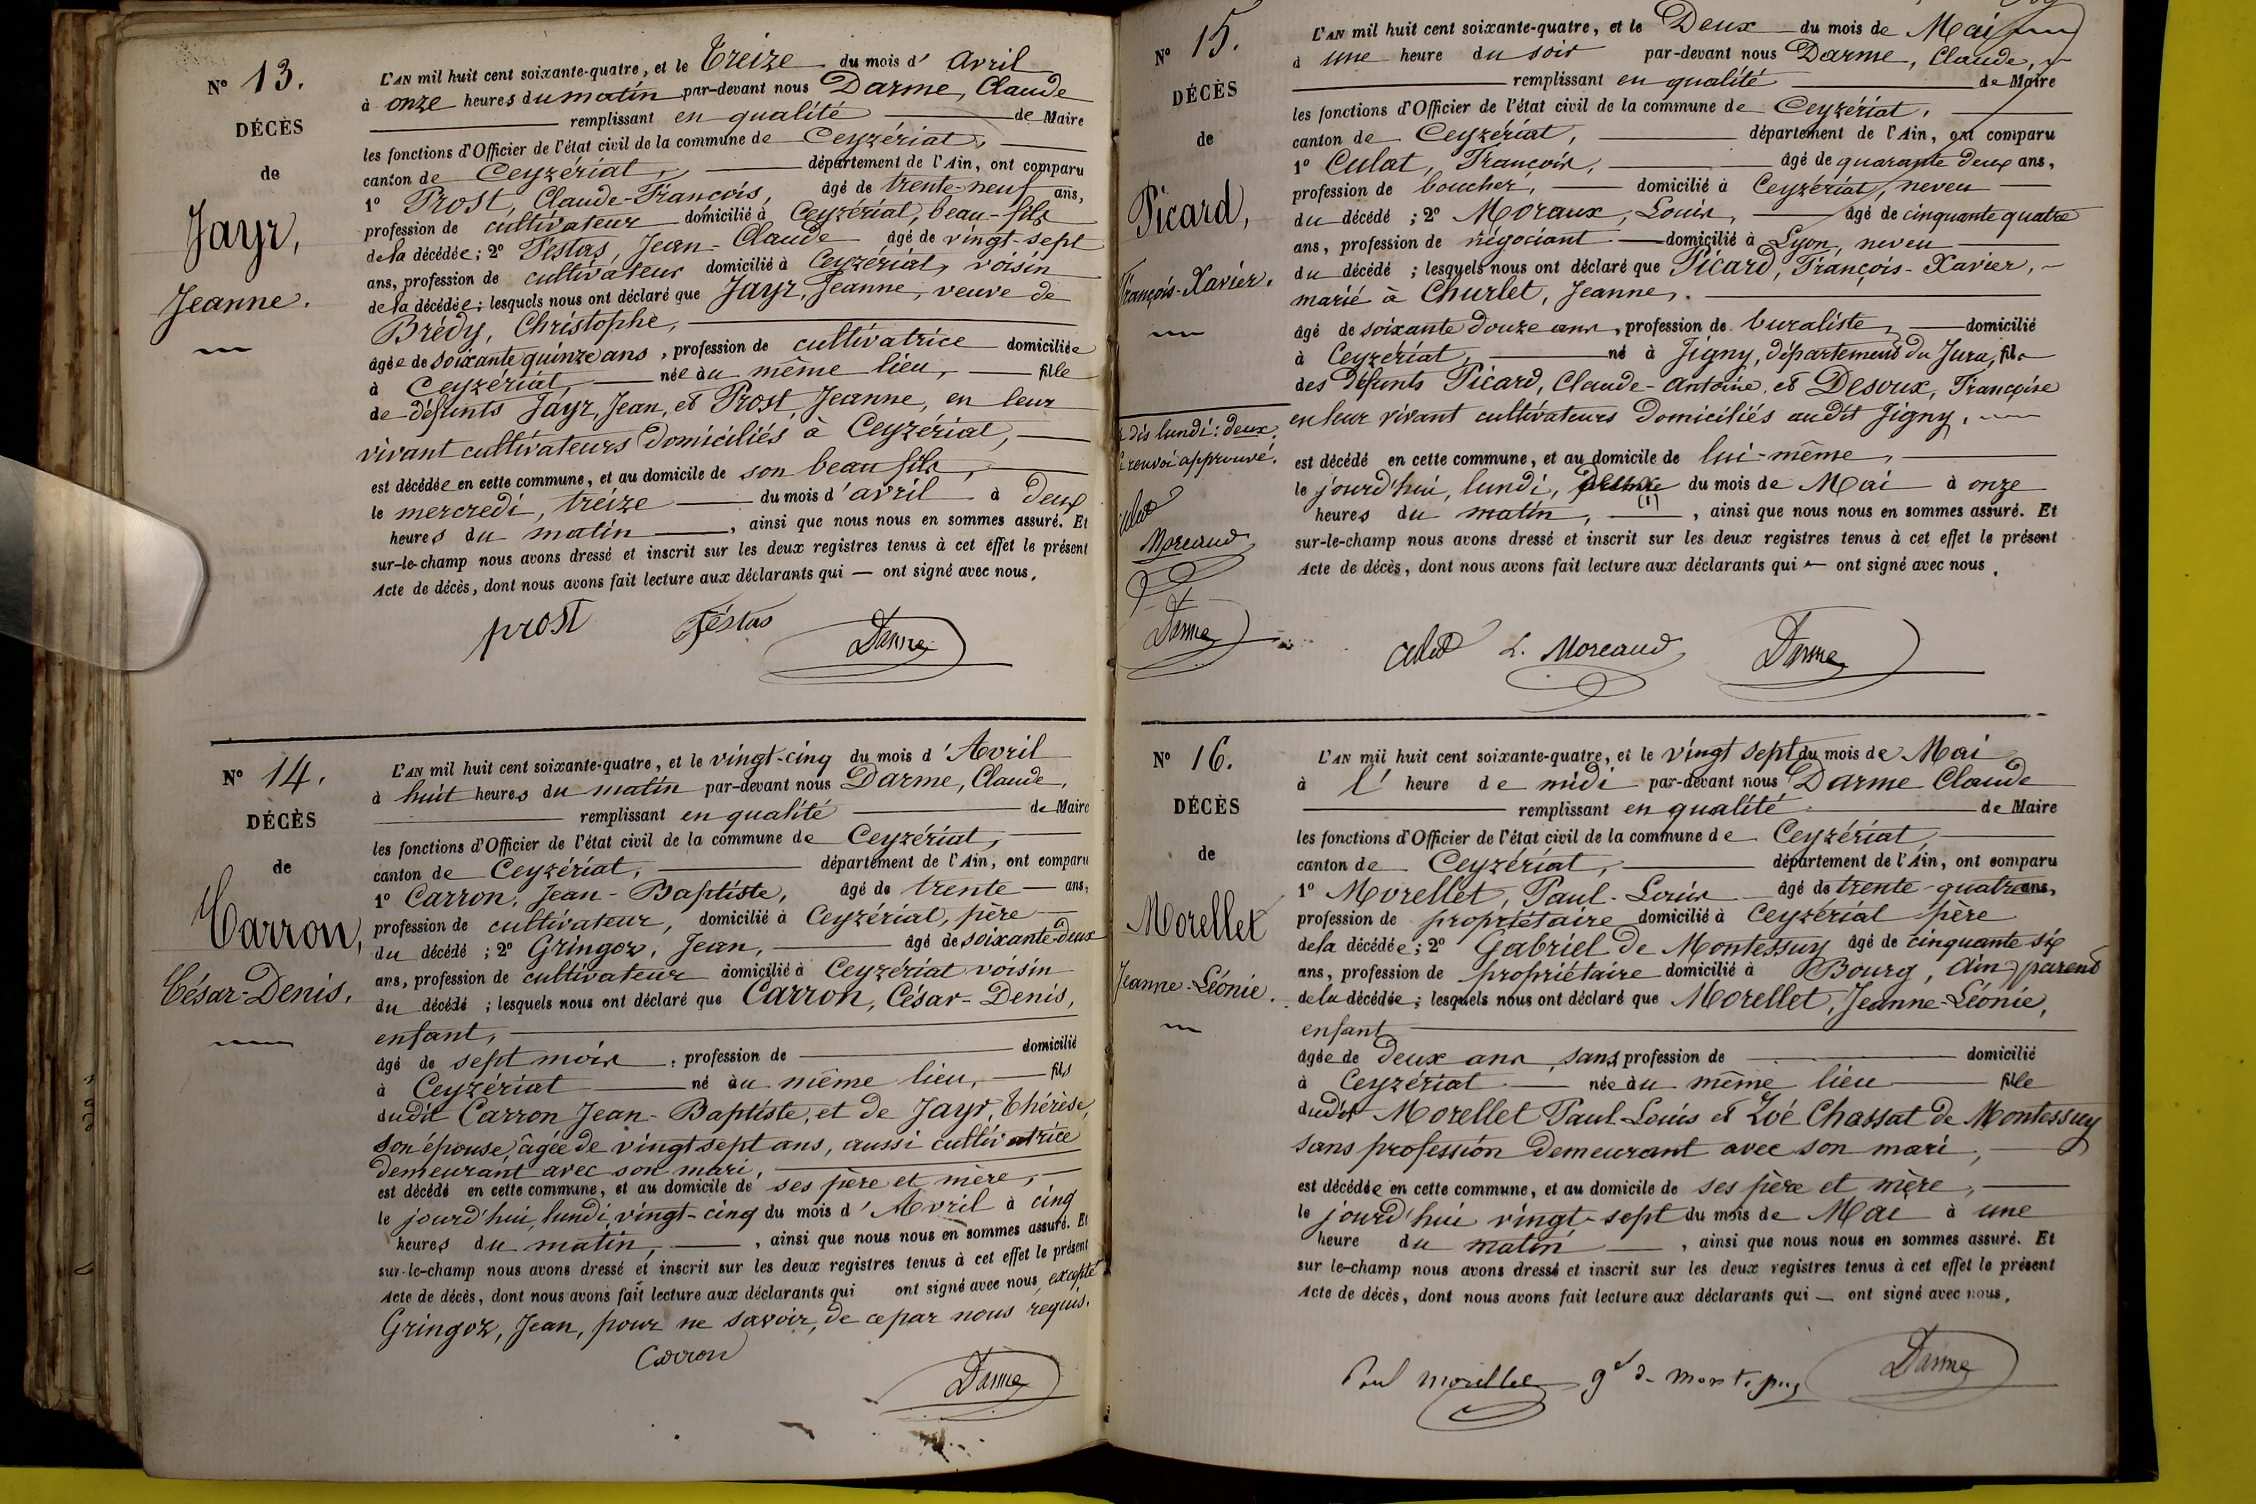 N° 13.
DÉCÈS
de
Jayr,
Jeanne.
L'AN mil huit cent soixante-quatre, et le Treize du mois d' Avril
à onze heures du matin par-devant nous Darme, Claude
remplissant en qualité de Maire
les fonctions d'Officier de l'état civil de la commune de Ceyzériat,
canton de Ceyzériat, département de l'Ain, ont comparu
1° Prost, Claude-François, âgé de trente-neuf ans,
profession de cultivateur domicilié à Ceyzériat, beau-fils
de la décédée; 2° Festas, Jean-Claude âgé de vingt-sept
ans, profession de cultivateur domicilié à Ceyzériat, voisin
de la décédée; lesquels nous ont déclaré que Jayr, Jeanne, veuve de
Brédy, Christophe,
âgée de soixante quinze ans, profession de cultivatrice domiciliée
à Ceyzériat, née au même lieu, fille
de défunts Jayr, Jean, et Prost, Jeanne, en leur
vivant cultivateurs domiciliés à Ceyzériat,
est décédée en cette commune, et au domicile de son beau fils,
le mercredi, treize du mois d'avril à deux
heures du matin, ainsi que nous nous en sommes assuré. Et
sur-le-champ nous avons dressé et inscrit sur les deux registres tenus à cet effet le présent
Acte de décès, dont nous avons fait lecture aux déclarants qui — ont signé avec nous.
prost Féstas Darme
N° 14.
DÉCÈS
de
Carron,
César-Denis.
L'AN mil huit cent soixante-quatre, et le vingt-cinq du mois d'Avril
à huit heures du matin par-devant nous Darme, Claude,
remplissant en qualité de Maire
les fonctions d'Officier de l'état civil de la commune de Ceyzériat,
canton de Ceyzériat, département de l'Ain, ont comparu
1° Carron, Jean-Baptiste, âgé de trente ans,
profession de cultivateur, domicilié à Ceyzériat, père
du décédé; 2° Gringoz, Jean, âgé de soixante-deux
ans, profession de cultivateur domicilié à Ceyzériat voisin
du décédé; lesquels nous ont déclaré que Carron, César-Denis,
enfant,
âgé de sept mois, profession de domicilié
à Ceyzériat né au même lieu, fils
dudit Carron Jean-Baptiste, et de Jayr, Thérèse,
son épouse, âgée de vingt sept ans, aussi cultivatrice
demeurant avec son mari,
est décédé en cette commune, et au domicile de ses père et mère,
le jourd'hui, lundi, vingt-cinq du mois d'Avril à cinq
heures du matin, ainsi que nous nous en sommes assuré. Et
sur-le-champ nous avons dressé et inscrit sur les deux registres tenus à cet effet le présent
Acte de décès, dont nous avons fait lecture aux déclarants qui ont signé avec nous, excepté
Gringoz, Jean, pour ne savoir, de ce par nous requis.
Carron
Darme
N° 15.
DÉCÈS
de
Picard,
François-Xavier.
dis lundi: deux.
renvoi approuvé.
Culat
Moreaud
Darme
L'AN mil huit cent soixante-quatre, et le Deux du mois de Mai
à une heure du soir par-devant nous Darme, Claude,
remplissant en qualité de Maire
les fonctions d'Officier de l'état civil de la commune de Ceyzériat,
canton de Ceyzériat, département de l'Ain, ont comparu
1° Culat, François, âgé de quarante deux ans,
profession de boucher, domicilié à Ceyzériat, neveu
du décédé; 2° Moraux, Louis, âgé de cinquante quatre
ans, profession de négociant domicilié à Lyon, neveu
du décédé; lesquels nous ont déclaré que Picard, François-Xavier,
marié à Churlet, Jeanne,
âgé de soixante douze ans, profession de buraliste, domicilié
à Ceyzériat, né à Jigny, département du Jura, fils
des défunts Picard, Claude-Antoine, et Desoux, Françoise
en leur vivant cultivateurs domiciliés audit Jigny,
est décédé en cette commune, et au domicile de lui-même,
le jourd'hui, lundi, du mois de Mai à onze
heures du matin, (1), ainsi que nous nous en sommes assuré. Et
sur-le-champ nous avons dressé et inscrit sur les deux registres tenus à cet effet le présent
Acte de décès, dont nous avons fait lecture aux déclarants qui — ont signé avec nous.
Culat L. Moreaud Darme
N° 16.
DÉCÈS
de
Morellet
Jeanne-Léonie.
L'AN mil huit cent soixante-quatre, et le vingt sept du mois de Mai
à l' heure de midi par-devant nous Darme Claude
remplissant en qualité de Maire
les fonctions d'Officier de l'état civil de la commune de Ceyzériat,
canton de Ceyzériat, département de l'Ain, ont comparu
1° Morellet, Paul-Louis âgé de trente-quatre ans,
profession de propriétaire domicilié à Ceyzériat père
de la décédée; 2° Gabriel de Montessuy âgé de cinquante six
ans, profession de propriétaire domicilié à Bourg, (Ain) parent
de la décédée; lesquels nous ont déclaré que Morellet, Jeanne-Léonie,
enfant
âgée de deux ans, sans profession de domicilié
à Ceyzériat née au même lieu fille
dudit Morellet Paul-Louis et Zoé Chassat de Montessuy
sans profession demeurant avec son mari,
est décédée en cette commune, et au domicile de ses père et mère,
le jourd'hui vingt-sept du mois de Mai à une
heure du matin, ainsi que nous nous en sommes assuré. Et
sur le-champ nous avons dressé et inscrit sur les deux registres tenus à cet effet le présent
Acte de décès, dont nous avons fait lecture aux déclarants qui — ont signé avec nous.
Paul Morellet gel de Montessuy Darme